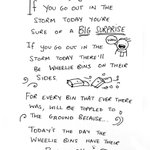 IF YOU GO OUT IN THE
STORM TODAY YOU'RE
SURE OF A BIG SURPRISE
IF YOU GO OUT IN THE
STORM TODAY THERE'LL
BE WHEELIE BINS ON THEIR
SIDES.
FOR EVERY BIN THAT EVER THERE
WAS, WILL BE TOPPLED TO
THE GROUND BECAUSE...
TODAY'S THE DAY THE
WHEELIE BINS HAVE THEIR